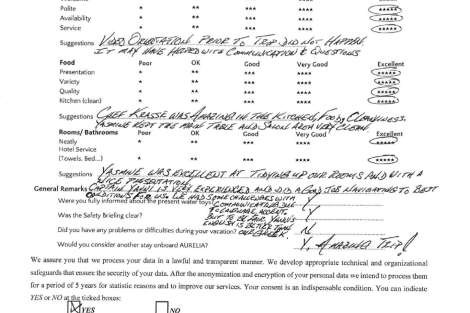 Polite * ** *** **** *****
Availability * ** *** **** *****
Service * ** *** **** *****
Suggestions VIDEO ORIENTATION PRIOR TO TRIP DID NOT HAPPEN
IT MAY HAVE HELPED WITH COMMUNICATION & QUESTIONS
Food Poor OK Good Very Good Excellent
Presentation * ** *** **** *****
Variety * ** *** **** *****
Quality * ** *** **** *****
Kitchen (clean) * ** *** **** *****
Suggestions CHEF WAS AMAZING IN THE KITCHEN, FOOD, CLEANLINESS.
YASMINE KEPT THE MAIN TABLE AND SALON AREA VERY CLEAN
Rooms/ Bathrooms Poor OK Good Very Good Excellent
Neatly * ** *** **** *****
Hotel Service
(Towels, Bed...) * ** *** **** *****
Suggestions YASMINE WAS EXCELLENT AT TIDYING UP OUR ROOMS AND WITH A
NICE PRESENTATION.
General Remarks CAPTAIN IS VERY EXPERIENCED AND DID A GOOD JOB NAVIGATING TO BEST
CONDITIONS FOR US. WE HAD SOME CHALLENGES WITH
Were you fully informed about the present water toys? COMMUNICATING DUE Y
TO LANGUAGE ACCENT,
Was the Safety Briefing clear? BUT TO BE FAIR Y
ENGLISH IS BETTER THAN
Did you have any problems or difficulties during your vacation? OUR GREEK. N
Would you consider another stay onboard AURELIA? Y, AMAZING TRIP!
We assure you that we process your data in a lawful and transparent manner. We develop appropriate technical and organizational
safeguards that ensure the security of your data. After the anonymization and encryption of your personal data we intend to process them
for a period of 5 years for statistic reasons and to improve our services. Your consent is an indispensable condition. You can indicate
YES or NO at the ticked boxes:
YES NO